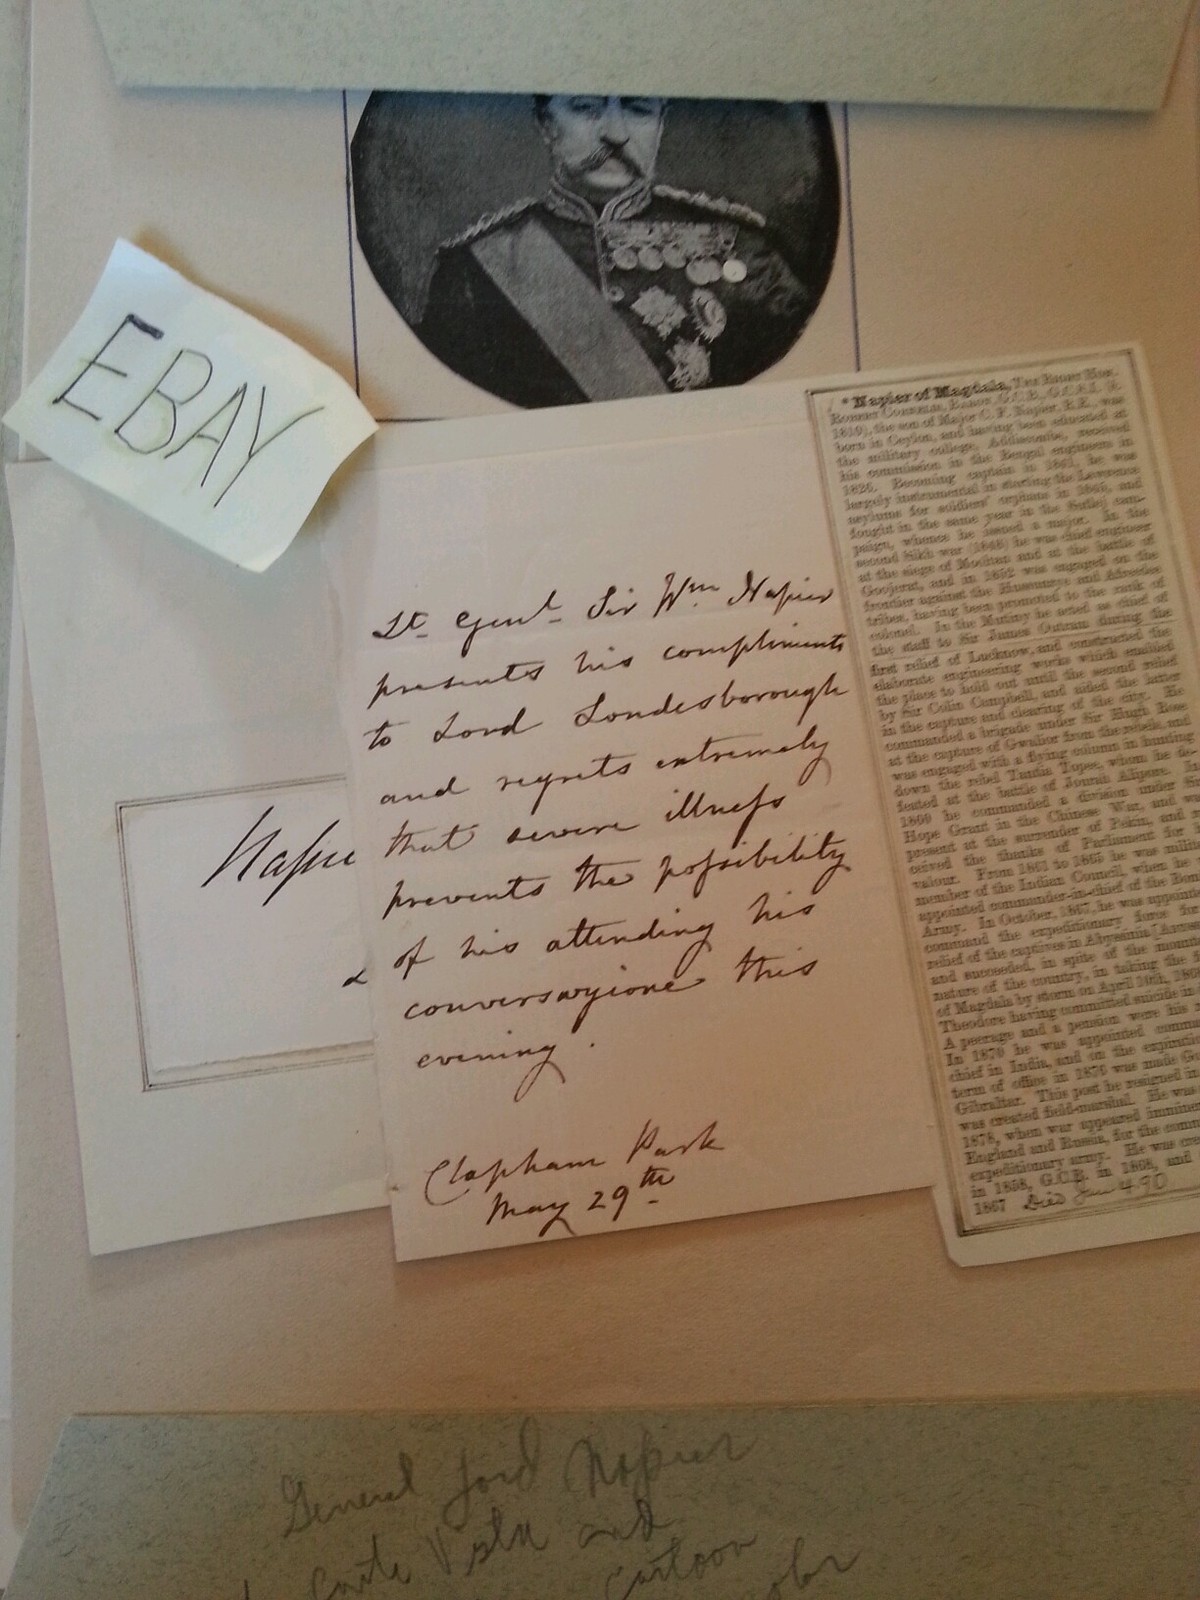 EBAY
Napier of Magdala, THE RIGHT HON.
ROBERT CORNELIS, BARON, G.C.B., G.C.S.I. (b.
1810), the son of Major C. F. Napier, R.E., was
born in Ceylon, and having been educated at
the military college, Addiscombe, received
his commission in the Bengal engineers in
1826. Becoming captain in 1841, he was
largely instrumental in starting the Lawrence
asylums for soldiers' orphans in 1845, and
fought in the same year in the Sutlej cam-
paign, whence he issued a major. In the
second Sikh war (1848) he was chief engineer
at the siege of Mooltan and at the battle of
Goojerat, and in 1852 was engaged on the
frontier against the Hussunzye and Afreedee
tribes, having been promoted to the rank of
colonel. In the Mutiny he acted as chief of
the staff to Sir James Outram during the
first relief of Lucknow, and constructed the
elaborate engineering works which enabled
the place to hold out until the second relief
by Sir Colin Campbell, and aided the latter
in the capture and clearing of the city. He
commanded a brigade under Sir Hugh Rose
at the capture of Gwalior from the rebels, and
was engaged with a flying column in hunting
down the rebel Tantia Topee, whom he de-
feated at the battle of Jourah Alipore. In
1860 he commanded a division under Sir
Hope Grant in the Chinese War, and was
present at the surrender of Pekin, and
ceived the thanks of Parliament for
valour. From 1861 to 1865 he was
member of the Indian Council, when he
appointed commander-in-chief of the
Army. In October, 1867, he was appointed
command the expeditionary force for
relief of the captives in Abyssinia
and succeeded, in spite of the
nature of the country, in taking the
of Magdala by storm on April 10th,
Theodore having committed suicide in
A peerage and a pension were his
In 1870 he was appointed
chief in India, and on the
term of office in 1876 was made
Gibraltar. This post he resigned in
was created field-marshal. He was
1878, when war appeared
England and Russia, for the
expeditionary army. He was
in 1858, G.C.B. in 1868, and
1867 Died Jan 4.90
Lt. Genl. Sir Wm. Napier
presents his compliments
to Lord Londesborough
and regrets extremely
that severe illness
prevents the possibility
of his attending his
conversazione this
evening.
Clapham Park
May 29th
Napie
General Lord Napier
Carte Vista and
Cartoon